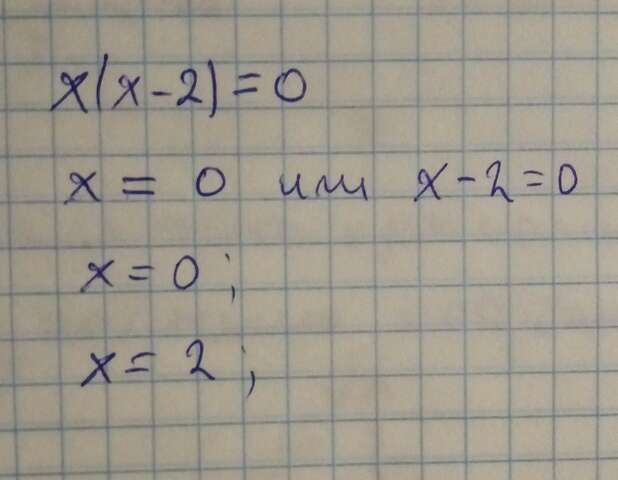 x(x-2)=0
x = 0 или x-2=0
x=0;
x= 2;